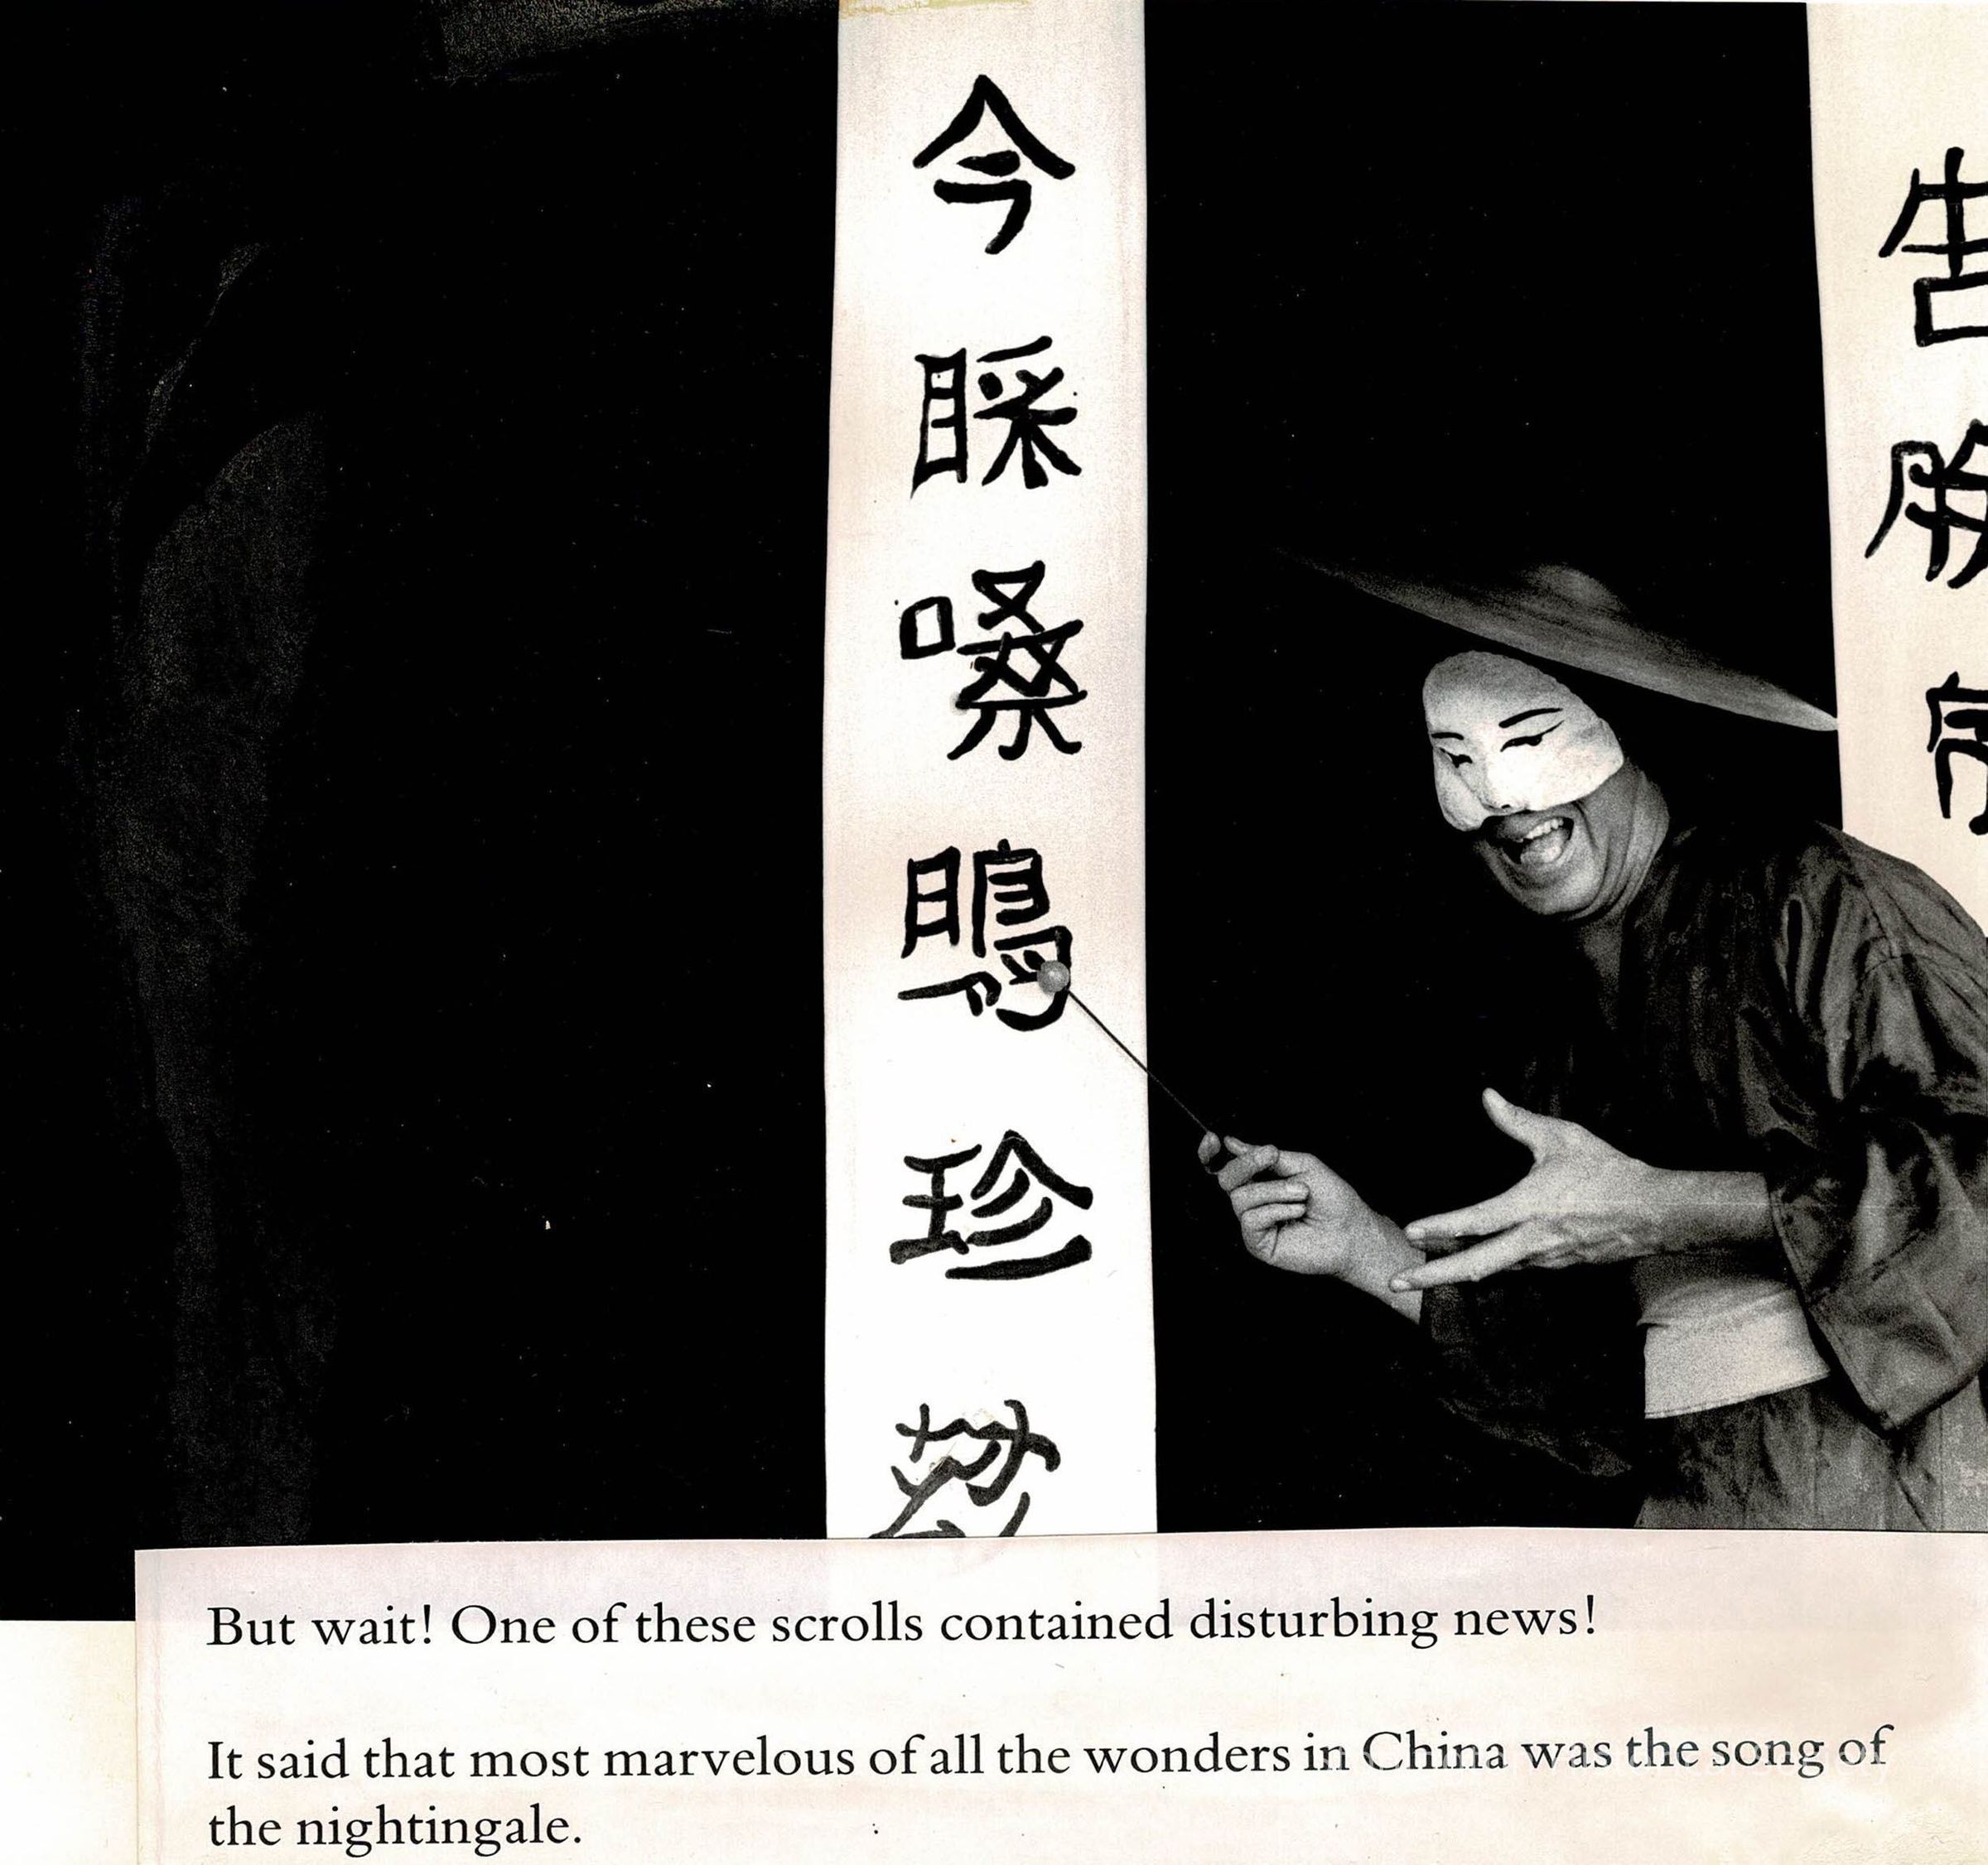 今
睬
嗓
珍
告
But wait! One of these scrolls contained disturbing news!
It said that most marvelous of all the wonders in China was the song of
the nightingale.